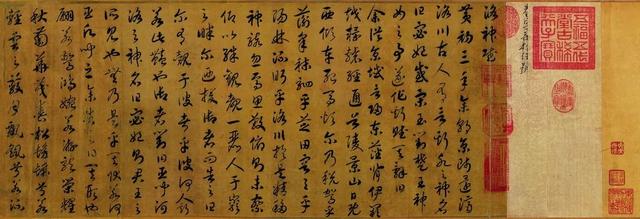 五福五代堂古稀天子寶
洛神賦
黃初三年余朝京師還濟
洛川古人有言斯水之神名
曰宓妃感宋玉對楚王神
女之事遂作斯賦其辭曰
余從京域言歸東藩背伊闕
越轘轅經通谷陵景山日既
西傾車殆馬煩爾乃稅駕乎
蘅皋秣駟乎芝田容與乎
陽林流眄乎洛川於是精移
神駭忽焉思散俯則未察
仰以殊觀覩一麗人于巖
之畔爾迺援御者而告之曰
爾有覿於彼者乎彼何人斯
若此豔也御者對曰臣聞河洛
之神名曰宓妃則君王之
所見也無乃是乎其狀若何
臣願聞之余告之曰其形也
翩若驚鴻婉若游龍榮耀
秋菊華茂春松髣髴兮若
輕雲之蔽月飄颻兮若